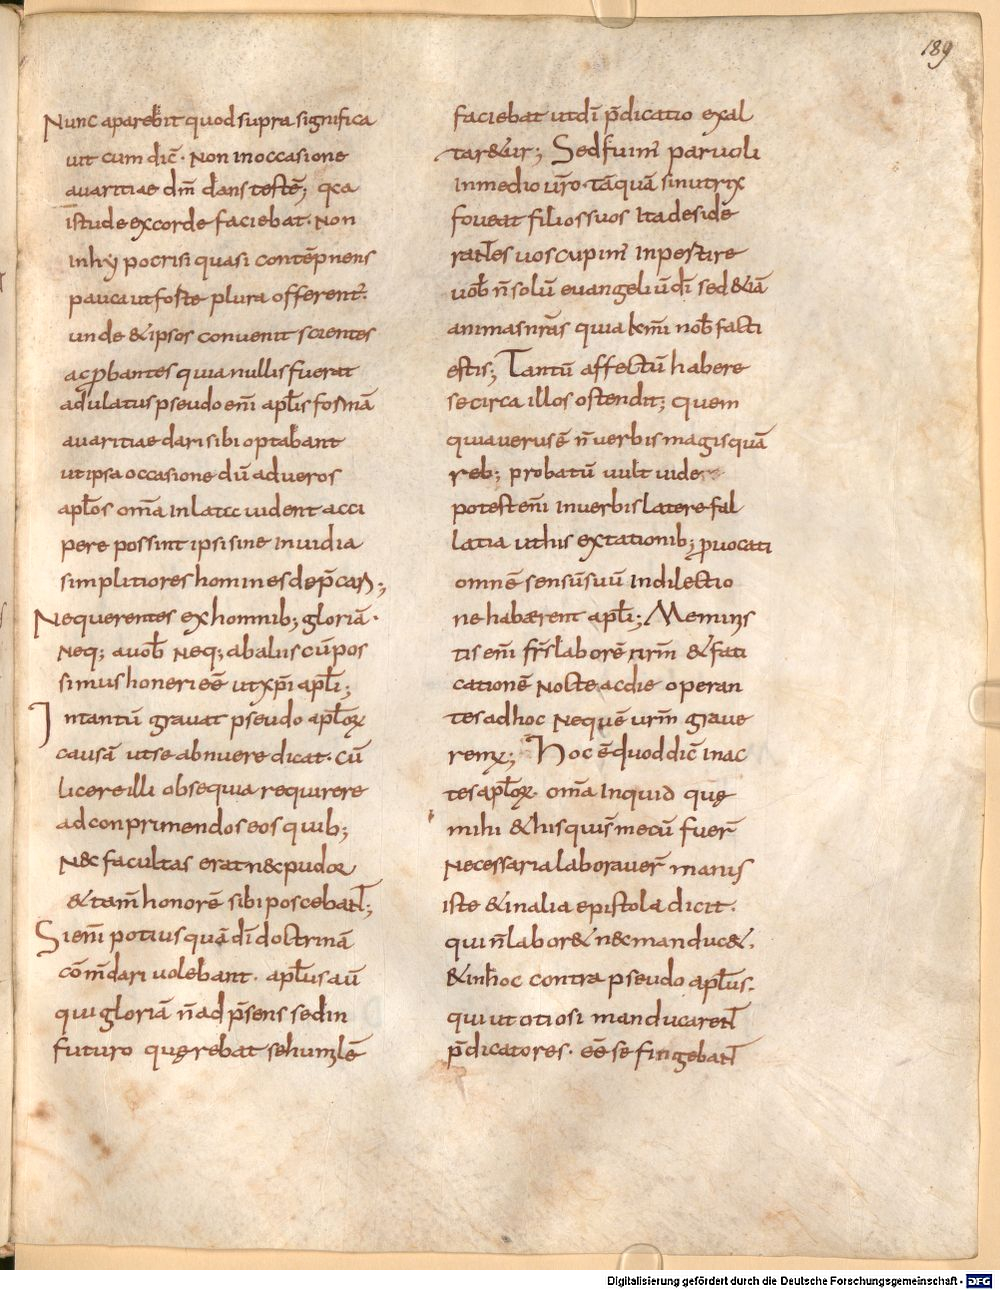 189
Nunc aparebit quod supra significa
uit cum dic̄. Non in occasione
auaritiae dm̄ dans testē; q̄a
istud e ex corde faciebat. Non
in hypocrisi quasi contēpnens
pauca ut foste plura offerent̄.
unde &ipsos conuenit scientes
ac ꝓbantes quia nullis fuerat
adulatus pseudo em̄ apl̄is formā
auaritiae dari sibi optabant
ut ipsa occasione dū ad ueros
apl̄os om̄a inlatcc uident acci
pere possint ipsi sine inuidia
simplitiores homines dep̄carꝫ;
Ne querentes ex hominib; gloriā.
Neq; a uob̄ neq; ab aliis cū pos
simus honeri eē ut xp̄i apl̄i;
In tantū grauat pseudo apl̄oꝝ
causā ut se abnuere dicat. cū
licere illi obsequia requirere
ad conprimendos eos quib;
n&c facultas erat n&c pudor
&tam̄ honorē sibi poscebant̄;
Si em̄ potius quā dī doctrinā
cōm̄dari uolebant. apl̄us aū
qui gloriā n̄ ad p̄sens sed in
futuro querebat se humilē
faciebat ut dī p̄dicatio exal
tar&ur; Sed fuim̄ paruoli
in medio ur̄o. tāquā si nutrix
foueat filios suos Ita desidē
rantes uos cupim̄ inpertire
uob̄ n̄ solū euangeliū dī sed &iā
animas nr̄as quia kmi nob̄ facti
estis; Tantū affectū habere
se circa illos ostendit; quem
quia uerus ē n̄ uerbis magis quā
reb; probatū uult uide
potest em̄ in uerbis latere fal
latia ut his extationib; ꝓuocati
omnē sensū suū in dilectio
ne habaerent apl̄i; Meminis
tis em̄ fr̄s laborē nr̄m &fati
cationē nocte ac die operan
tes ad hoc ne quē ur̄m graue
remꝰ; Hoc ē quod dic̄ in ac
tes apl̄oꝝ. om̄a inquid quę
mihi &his qui mecū fuer̄
necessaria laborauer̄ manus
iste &in alia epistola dicit.
qui n̄ labor& n&c manduc&.
&in hoc contra pseudo apl̄us.
qui ut otiosi manducarent̄
p̄dicatores. eē se fingebant̄
Digitalisierung gefördert durch die Deutsche Forschungsgemeinschaft - DFG